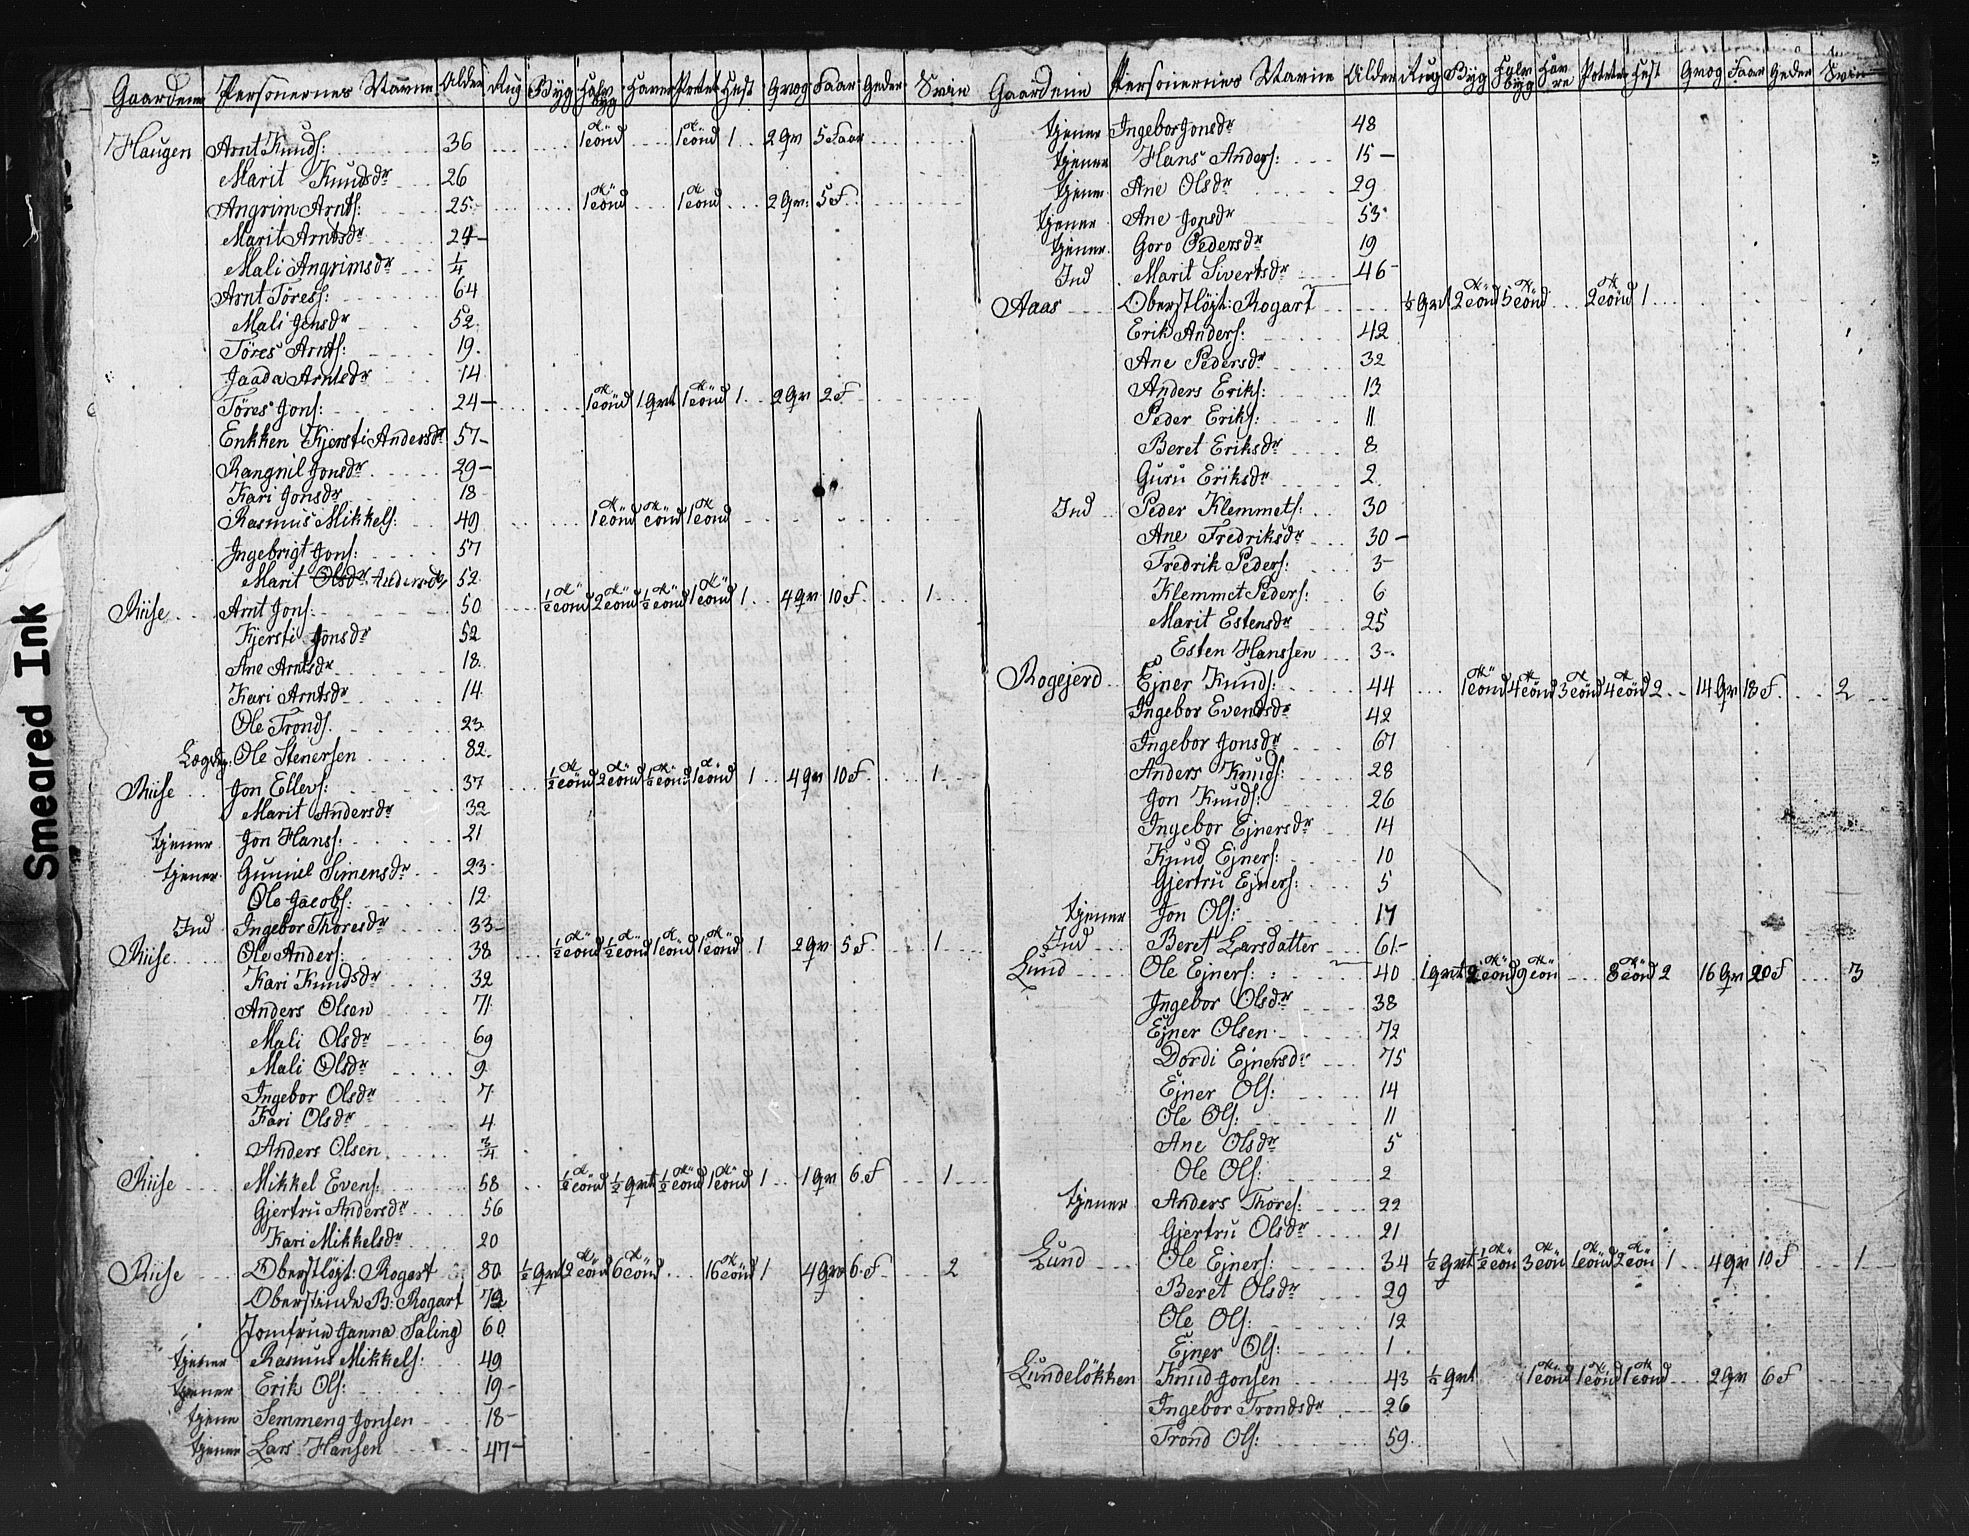 Gaardene Personernes Navne Alder Rug Byg Halv Byg Haver Potet Hest Qvæg Faar Geder Svin
Haugen Arnt Knuds: 36 1 Tönd 1 Tönd 1 2 Qv 5 Faar
Marit Knudsdr 26
Angrim Arnts: 25 1 Tönd 1 Tönd 2 Qv: 5 F
Marit Arntsdr 24
Mali Angrimsdr 1/4
Arnt Töress: 64
Mali Jonsdr 52
Töres Arnts: 19
Jaada Arntsdr 14
Töres Jons: 24 1 Tönd 1 Qvt 1 Tönd 1 2 Qv 2 F
Enkken Kjersti Andersdr 57
Rangnil Jonsdr 29
Kari Jonsdr 18
Rasmus Mikkels: 49 1 Tönd Tönd 1 Tönd
Jngebrigt Jons: 57
Marit Olsdr Andersdr 52
Riise Arnt Jons: 50 1/2 Tönd 2 Tönd 1/2 Tönd 1 Tönd 1 4 Qv 10 F 1
Kjersti Jonsdr 52
Ane Arntsdr 18
Kari Arntsdr 14
Ole Tronds. 23
Lægdsg: Ole Stenersen 82
Riise Jon Ellevs: 37 1/2 Tönd 2 Tönd 1/2 Tönd 1 Tönd 1 4 Qv 10 F 1
Marit Andersdr 32
tjener Jon Hans: 21
tjener Gunnil Simensdr 23
Ole Jacobs: 12
Ind Ingebor Thoresdr 33
Riise Ole Anders: 38 1/2 Tönd 1/2 Tönd 1 Tönd 1 Tönd 1 2 Qv 5 F 1
Kari Knudsdr 32
Anders Olsen 71
Mali Olsdr 69
Mali Olsdr 9
Ingebor Olsdr 7
Kari Olsdr 4
Anders Olsen 3/4
Riise Mikkel Evens: 58 1/2 Tönd 1/2 Qvt 1/2 Tönd 1 Tönd 1 1 Qv 6 F 1
Gjertru Andersdr 56
Kari Mikkelsdr 20
Riise Oberstløjt: Rogart 80 1/2 Qvt 2 Tönd 6 Tönd 16 Tönd 1 4 Qv 6 F 2
Oberstinde B: Rogart 72
Jomfrue Janna Saling 60
tjener Rasmus Mikkels: 49
tjener Erik Ols: 19
tjener Semmeng Jonsen 18
tjener Lars Hansen 47
Gaardene Personernes Navne Alder Rug Byg Halv Byg Havre Poteter Hest Qvæg Faar Geder Svin
tjener Ingebor Jonsdr 48
tjener Hans Anders: 15
tjener Ane Olsdr 29
tjener Ane Jonsdr 53
tjener Goro Pedersdr 19
Ind Marit Sivertsdr 46
Aaas Oberstløjt: Rogart 1/2 Qvt 2 Tönd 5 Tönd 2 Tönd 1
Erik Anders: 42
Ane Pedersdr 32
Anders Eriks: 13
Peder Eriks: 11
Beret Eriksdr 8
Guru Eriksdr 2
Ind Peder Klemmets: 30
Ane Fredriksdr 30
Fredrik Peders: 3
Klemmet Peders: 6
Marit Estensdr 25
Esten Hanssen 3
Rogejerd Ejner Knuds: 44 1 Tönd 4 Tönd 3 Tönd 4 Tönd 2 14 Qv 18 F 2
Ingebor Evensdr 42
Ingebor Jonsdr 67
Anders Knuds: 28
Jon Knuds: 26
Ingebor Ejnersdr 14
Knud Ejners: 10
Gjertru Ejners: 5
tjener Jon Ols: 17
Ind Beret Larsdatter 61
Lund Ole Ejners: 40 1 Qvt 2 Tönd 9 Tön 8 Tönd 2 16 Qv 20 F 3
Jngebor Olsdr 38
Ejner Olsen 72
Dordi Ejnersdr 75
Ejner Ols: 14
Ole Ols: 11
Ane Olsdr 5
Ole Ols: 2
tjener Anders Thores: 22
Gjertru Olsdr 21
Lund Ole Ejners: 34 1/2 Qvt 1/2 Tön 3 Tön 1 Tönd 2 Tön 1 4 Qv 10 F 1
Beret Olsdr 29
Ole Ols: 12
Ejner Ols: 1
Lundeløkken Knud Jonsen 43 1/2 Qvt 1 Tönd 1 Tönd 1 Tönd 2 Qv 6 F
Ingebor Trondsdr 26
Trond Ols: 59
Smeared Ink